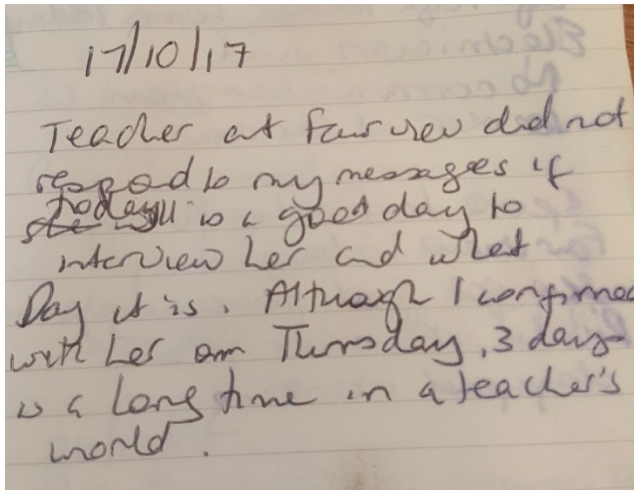 17/10/17
Teacher at Fairview did not
respond to my messages if
today is a good day to
interview her and what
Day it is. Although I confirmed
with her on Thursday, 3 days
is a long time in a teacher's
world.